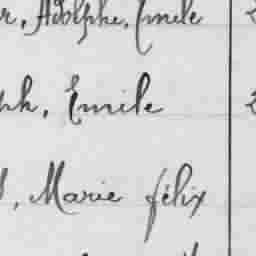 r, Adolphe, Emile
ph, Emile
, Marie félix